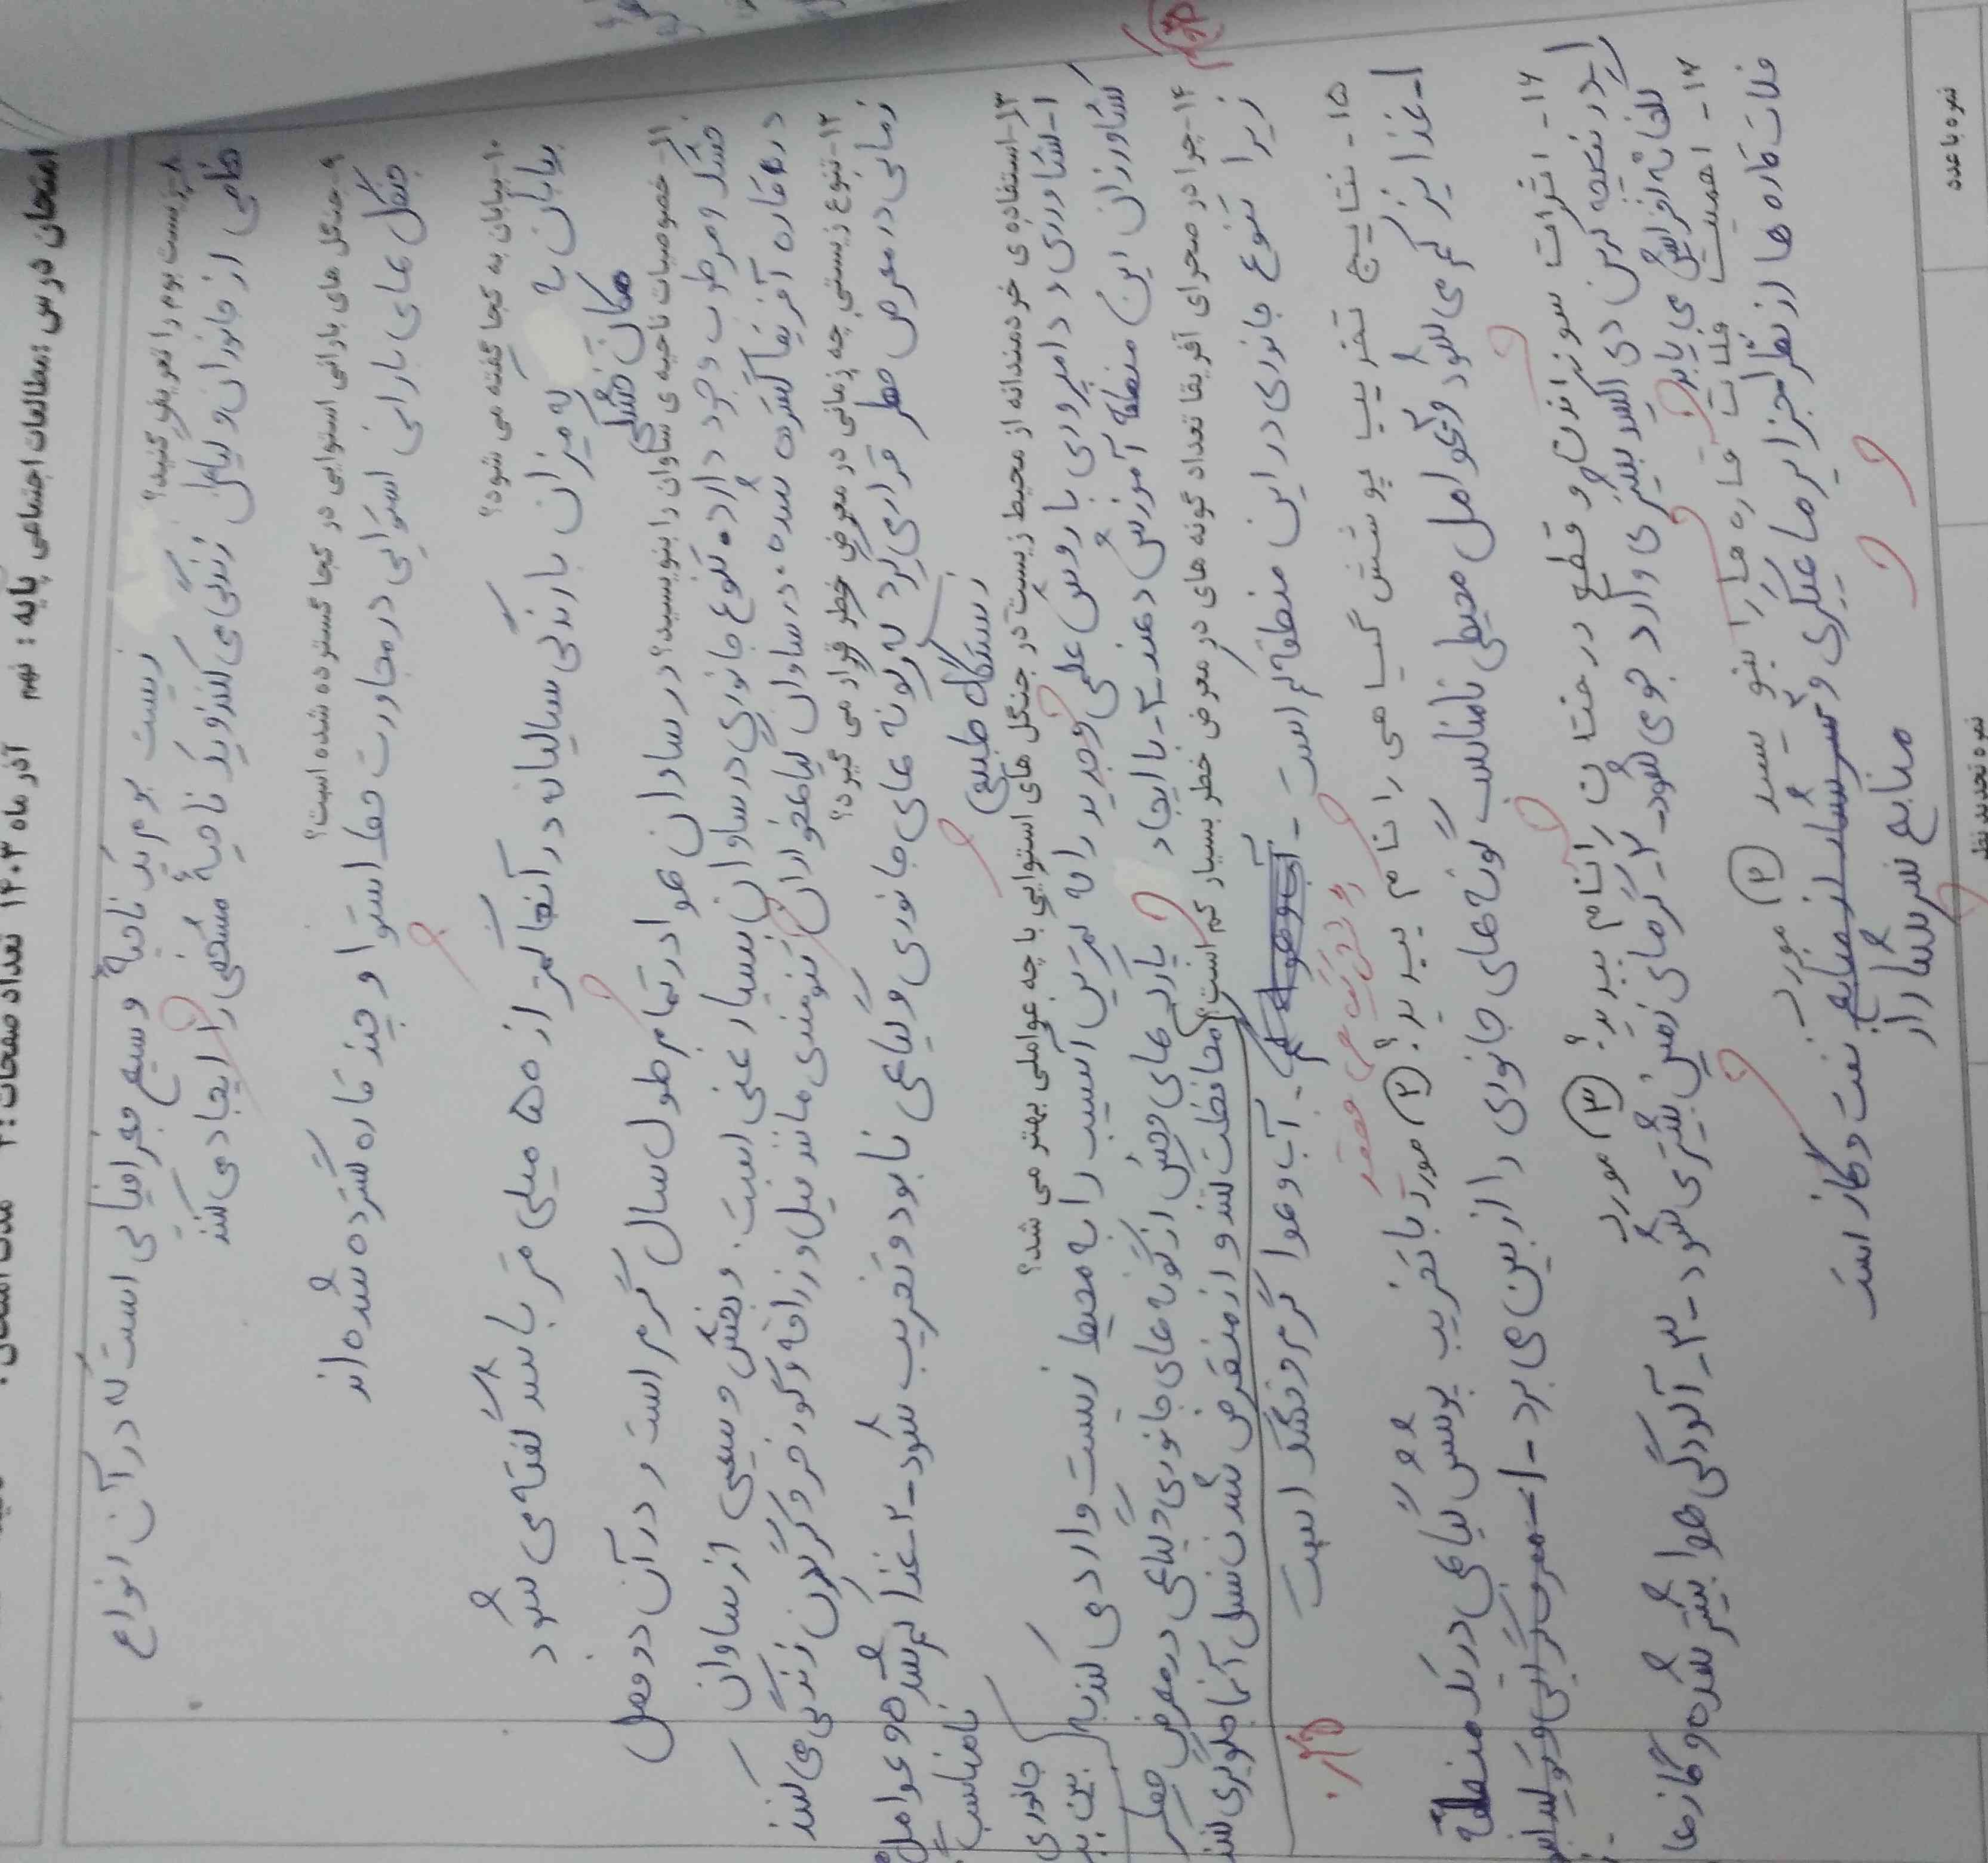 امتحان درس :مطالعات اجتماعی پایه : نهم آذر ماه ۱۴۰۳ تعداد صفحات :۲
۸-زیست بوم را تعریف کنید؟ زیست بوم یک ناحیهٔ وسیع جغرافیایی است که در آن انواع
خاصی از جانوران و گیاهان زندگی می کنند و یک ناحیهٔ مشخص را ایجاد می کنند
۹-جنگل های بارانی استوایی در کجا گسترده شده است؟
جنگل های بارانی استوایی در مجاورت خط استوا و چند قاره گسترده شده اند
۱۰-بیابان به کجا گفته می شود؟
بیابان به مکان خشکی که میزان بارندگی سالیانه در آنها کمتر از ۵۰ میلی متر باشد گفته می شود
۱۱-خصوصیات ناحیه ی ساوان را بنویسید؟ در ساوان هوا در تمام طول سال گرم است و در آن دو فصل
خشک و مرطوب وجود دارد. تنوع جانوری در ساوان بسیار غنی است. و بخش وسیعی از ساوان
در قاره آفریقا گسترده شده. در ساوان گیاهخواران تنومندی مانند فیل و زرافه و گورخر و کرگدن زندگی می کنند
۱۲-تنوع زیستی چه زمانی در معرض خطر قرار می گیرد؟
زمانی در معرض خطر قرار می گیرد که گونه های جانوری و گیاهی نابود و تخریب شود-۲-غذا کم شده و عوامل
زیستگاه طبیعی نامناسب
۱۳-استفاده ی خردمندانه از محیط زیست در جنگل های استوایی با چه عواملی بهتر می شد؟
۱-کشاورزی و دامپروری با روش علمی و جدید را که کمترین آسیب را به محیط زیست وارد می کند به
کشاورزان این منطقه آموزش دهند-۲-با ایجاد پارک های وحش از گونه های جانوری و گیاهی در معرض خطر
۱۴-چرا در صحرای آفریقا تعداد گونه های در معرض خطر بسیار کم است؟ محافظت کنند و از منقرض شدن نسل آنها جلوگیری کنند
زیرا تنوع جانوری در این منطقه کم است - آب و هوا گرم و خشک است
۱۵- نتایج تخریب پوشش گیاهی را نام ببرید؟ (۲) مورد با تخریب پوشش گیاهی در یک منطقه
۱-غذا نیز کم می شود و عوامل محیطی نامناسب گونه های جانوری را از بین می برد-
۱۶- اثرات سوزاندن و قطع درختان را نام ببرید؟ (۳) مورد
۱-در نتیجه کربن دی اکسید بیشتری وارد جوی شود-۲-گرمای زمین بیشتری شود-۳-آلودگی هوا بیشتر شده و گازها
گلخانه افزایش می یابد
۱۷- اهمیت فلات قاره ها را بنویسید (۲) مورد
فلات قاره ها از نظر ذخایر ماهیگیری و سرشار از منابع نفت و گاز است
منابع سرشار از
نمره با عدد
نمره تجدید نظر